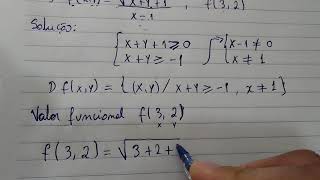 f(x,y) = √x+y+1 / x-1 , f(3,2)
Solução:
{ x+y+1 ≥ 0 { x-1 ≠ 0
x+y ≥ -1 x ≠ 1
D f(x,y) = { (x,y) / x+y ≥ -1 , x ≠ 1 }
Valor funcional f(3, 2)
x y
f(3, 2) = √3+2+